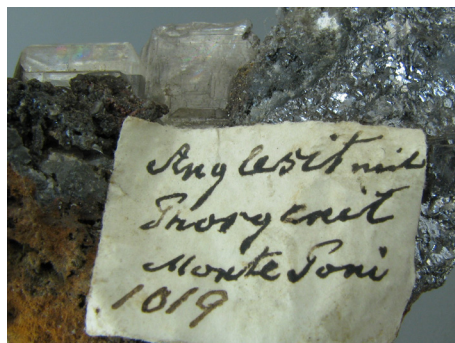 Anglesit mit
Phosgenit
Monte Poni
1019